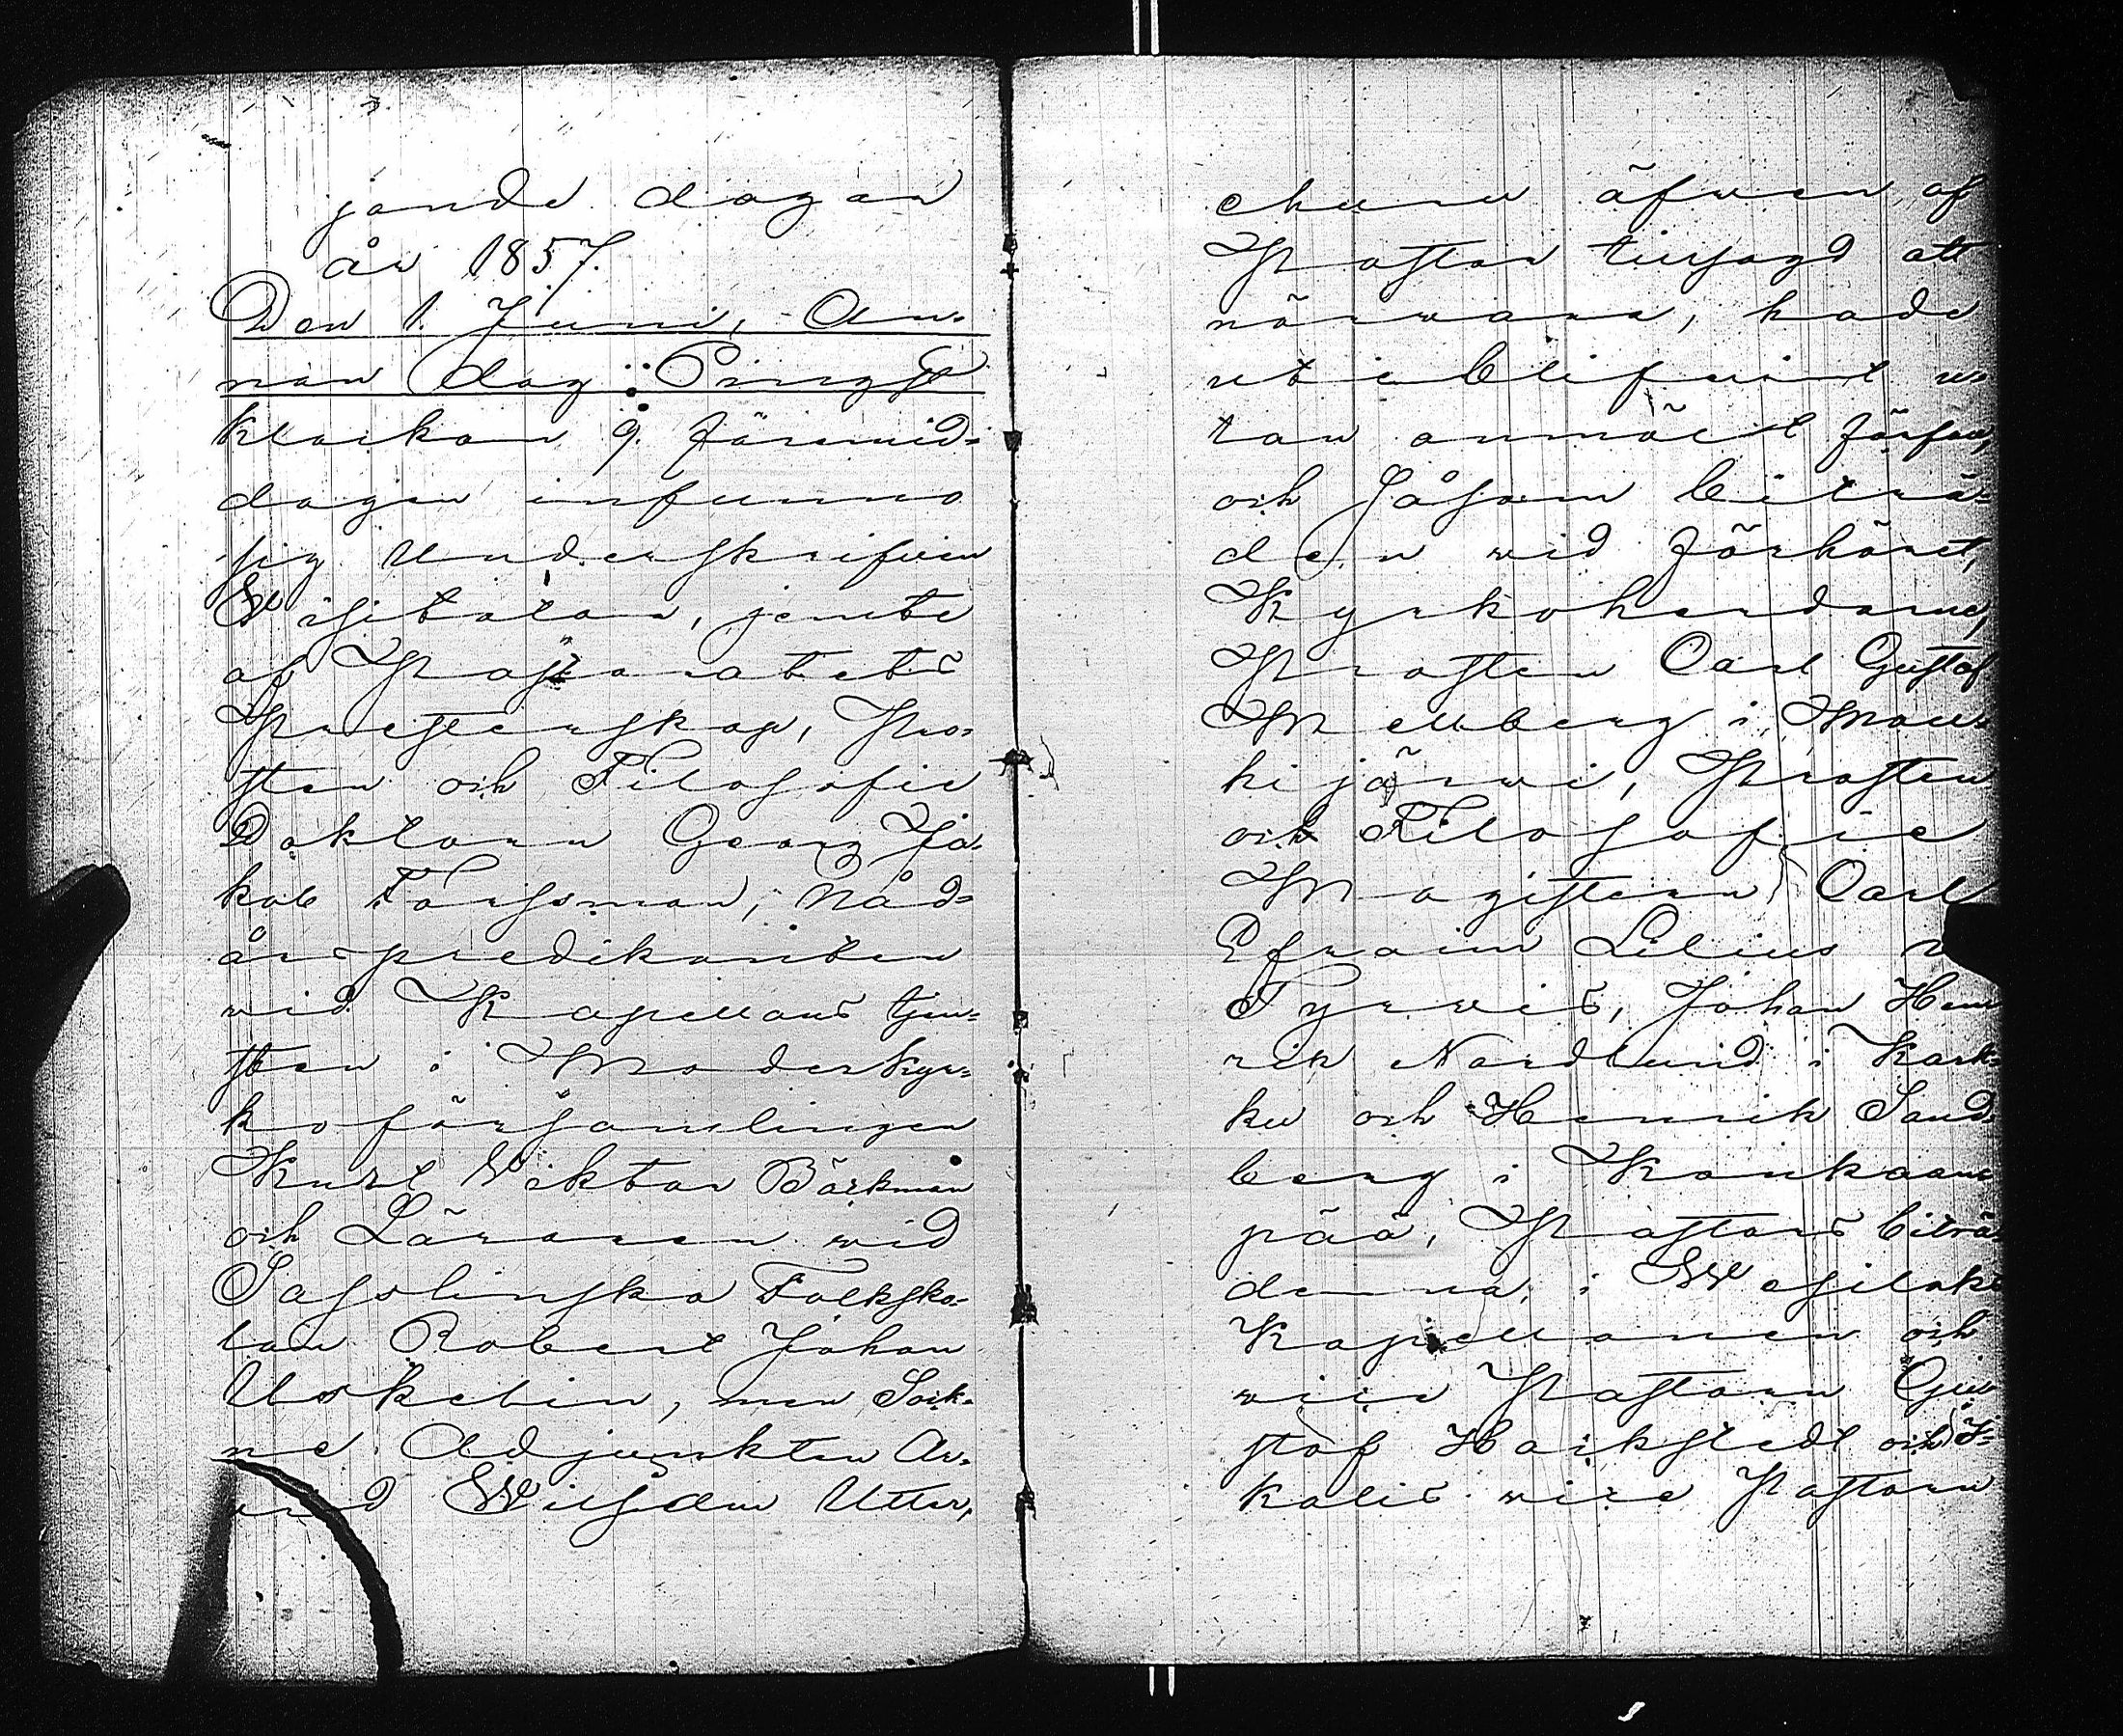 jande dagar
år 1857.
Den 1. Juni, An-
nan dag Pingst
klockan 9. förmid-
dagen infunno
sig Underskrifven
Visitator, jemte
af Pastoratets
Presterskap, Pro-
sten och Filosofie
Doktorn Georg Ja-
kob Forssman, Nåd-
årspredikanten
vid Kapellans tjen-
sten i Moderkyr-
koförsamlingen
Knut Viktor Bäckman
och Läraren vid
Sasslinska Folksko-
lan Robert Johan
Uskelin, men Sock-
ne Adjunkten Ar-
vid Wilhelm Utter,
churu äfven af
Pastor tillsagd att
närvara, hade
uteblifvit u-
tan anmält förfall,
och såsom biträ-
den vid förhöret,
Kyrkoherdarne,
Prosten Carl Gustaf
Mellberg i Mou-
hijärvi, Prosten
och Filosofie
Magistern Carl
Efraim Lilius
Tyrvis, Johan Hen
rik Nordlund i Kark-
ku och Henrik Sand-
berg i Kankaan
pää, Pastors biträ-
dena, i Vesilaks
Kapellanen och
vice Pastorn Gu
staf Hackstedt och I-
kalis vice Pastorn